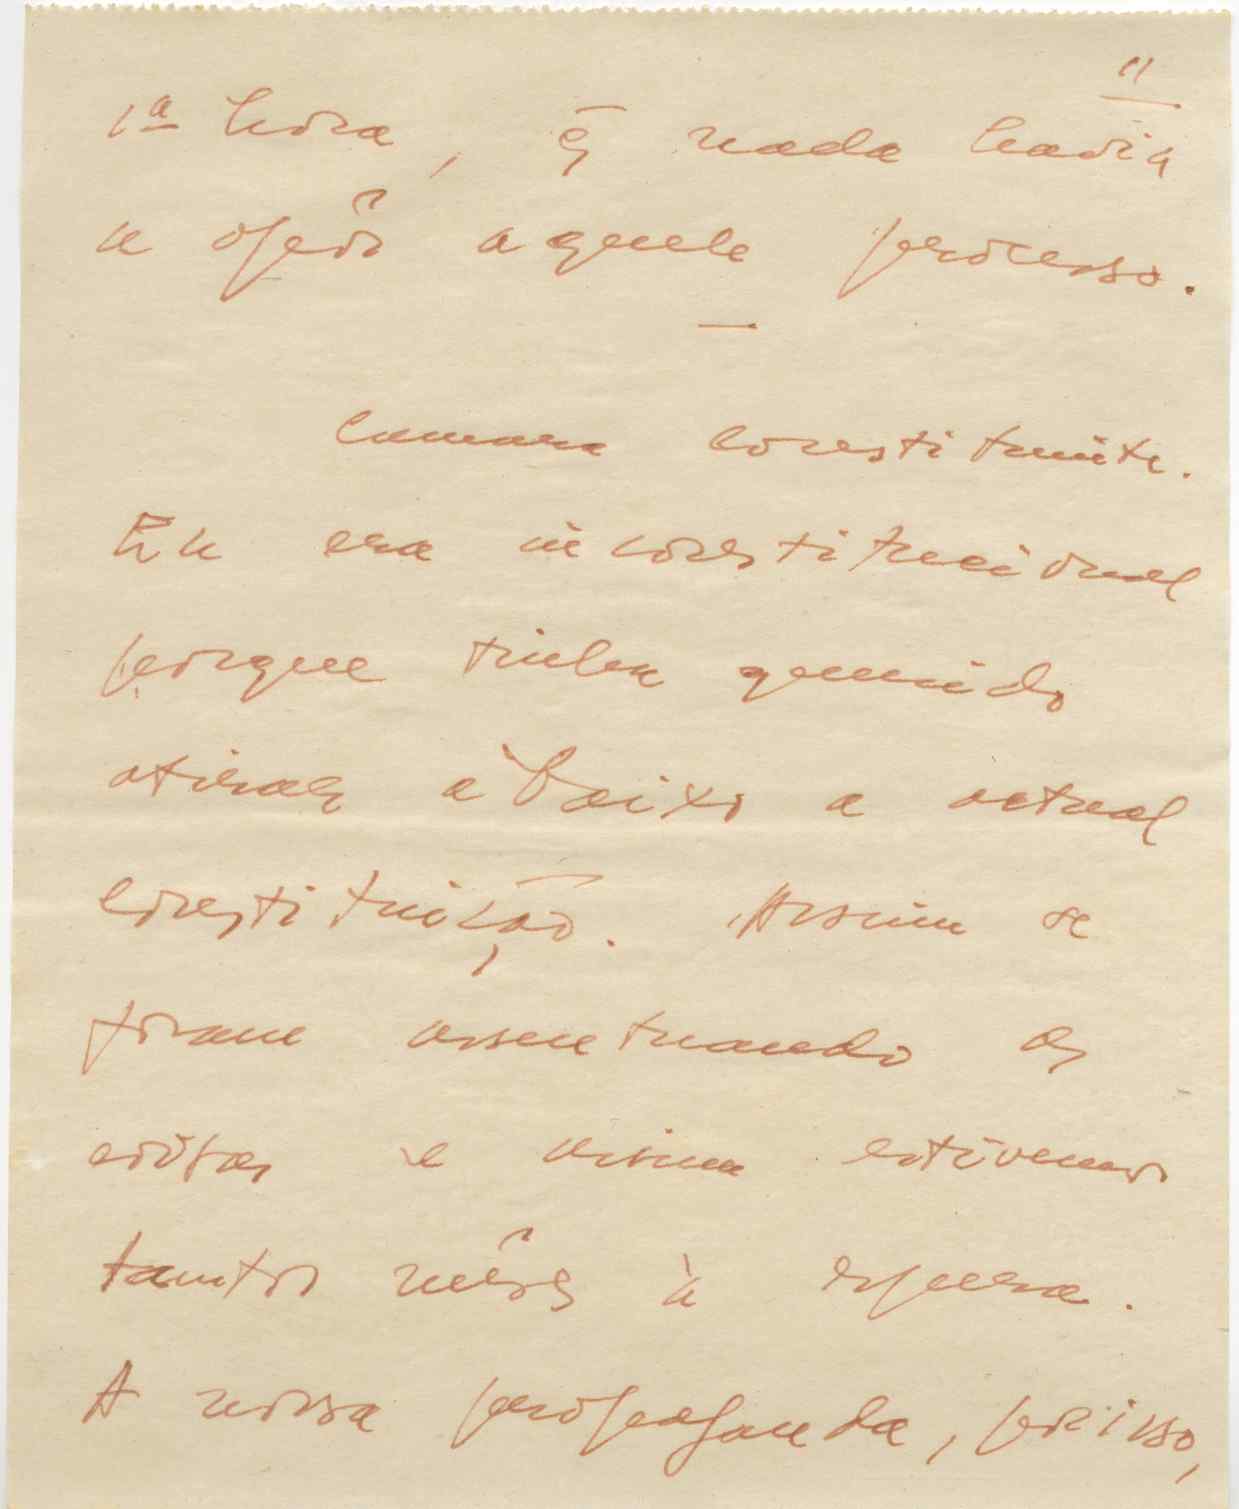 11
1ª hora, q̃ nada havia
a opôr aquele processo.
Camara Constituinte.
Eu era inconstitucional
porque tinha querido
atirar abaixo a actual
Constituição. Assim se
foram assentuando as
coisas e assim estivemos
tantos mêses à espera.
A nossa propaganda, por isso,